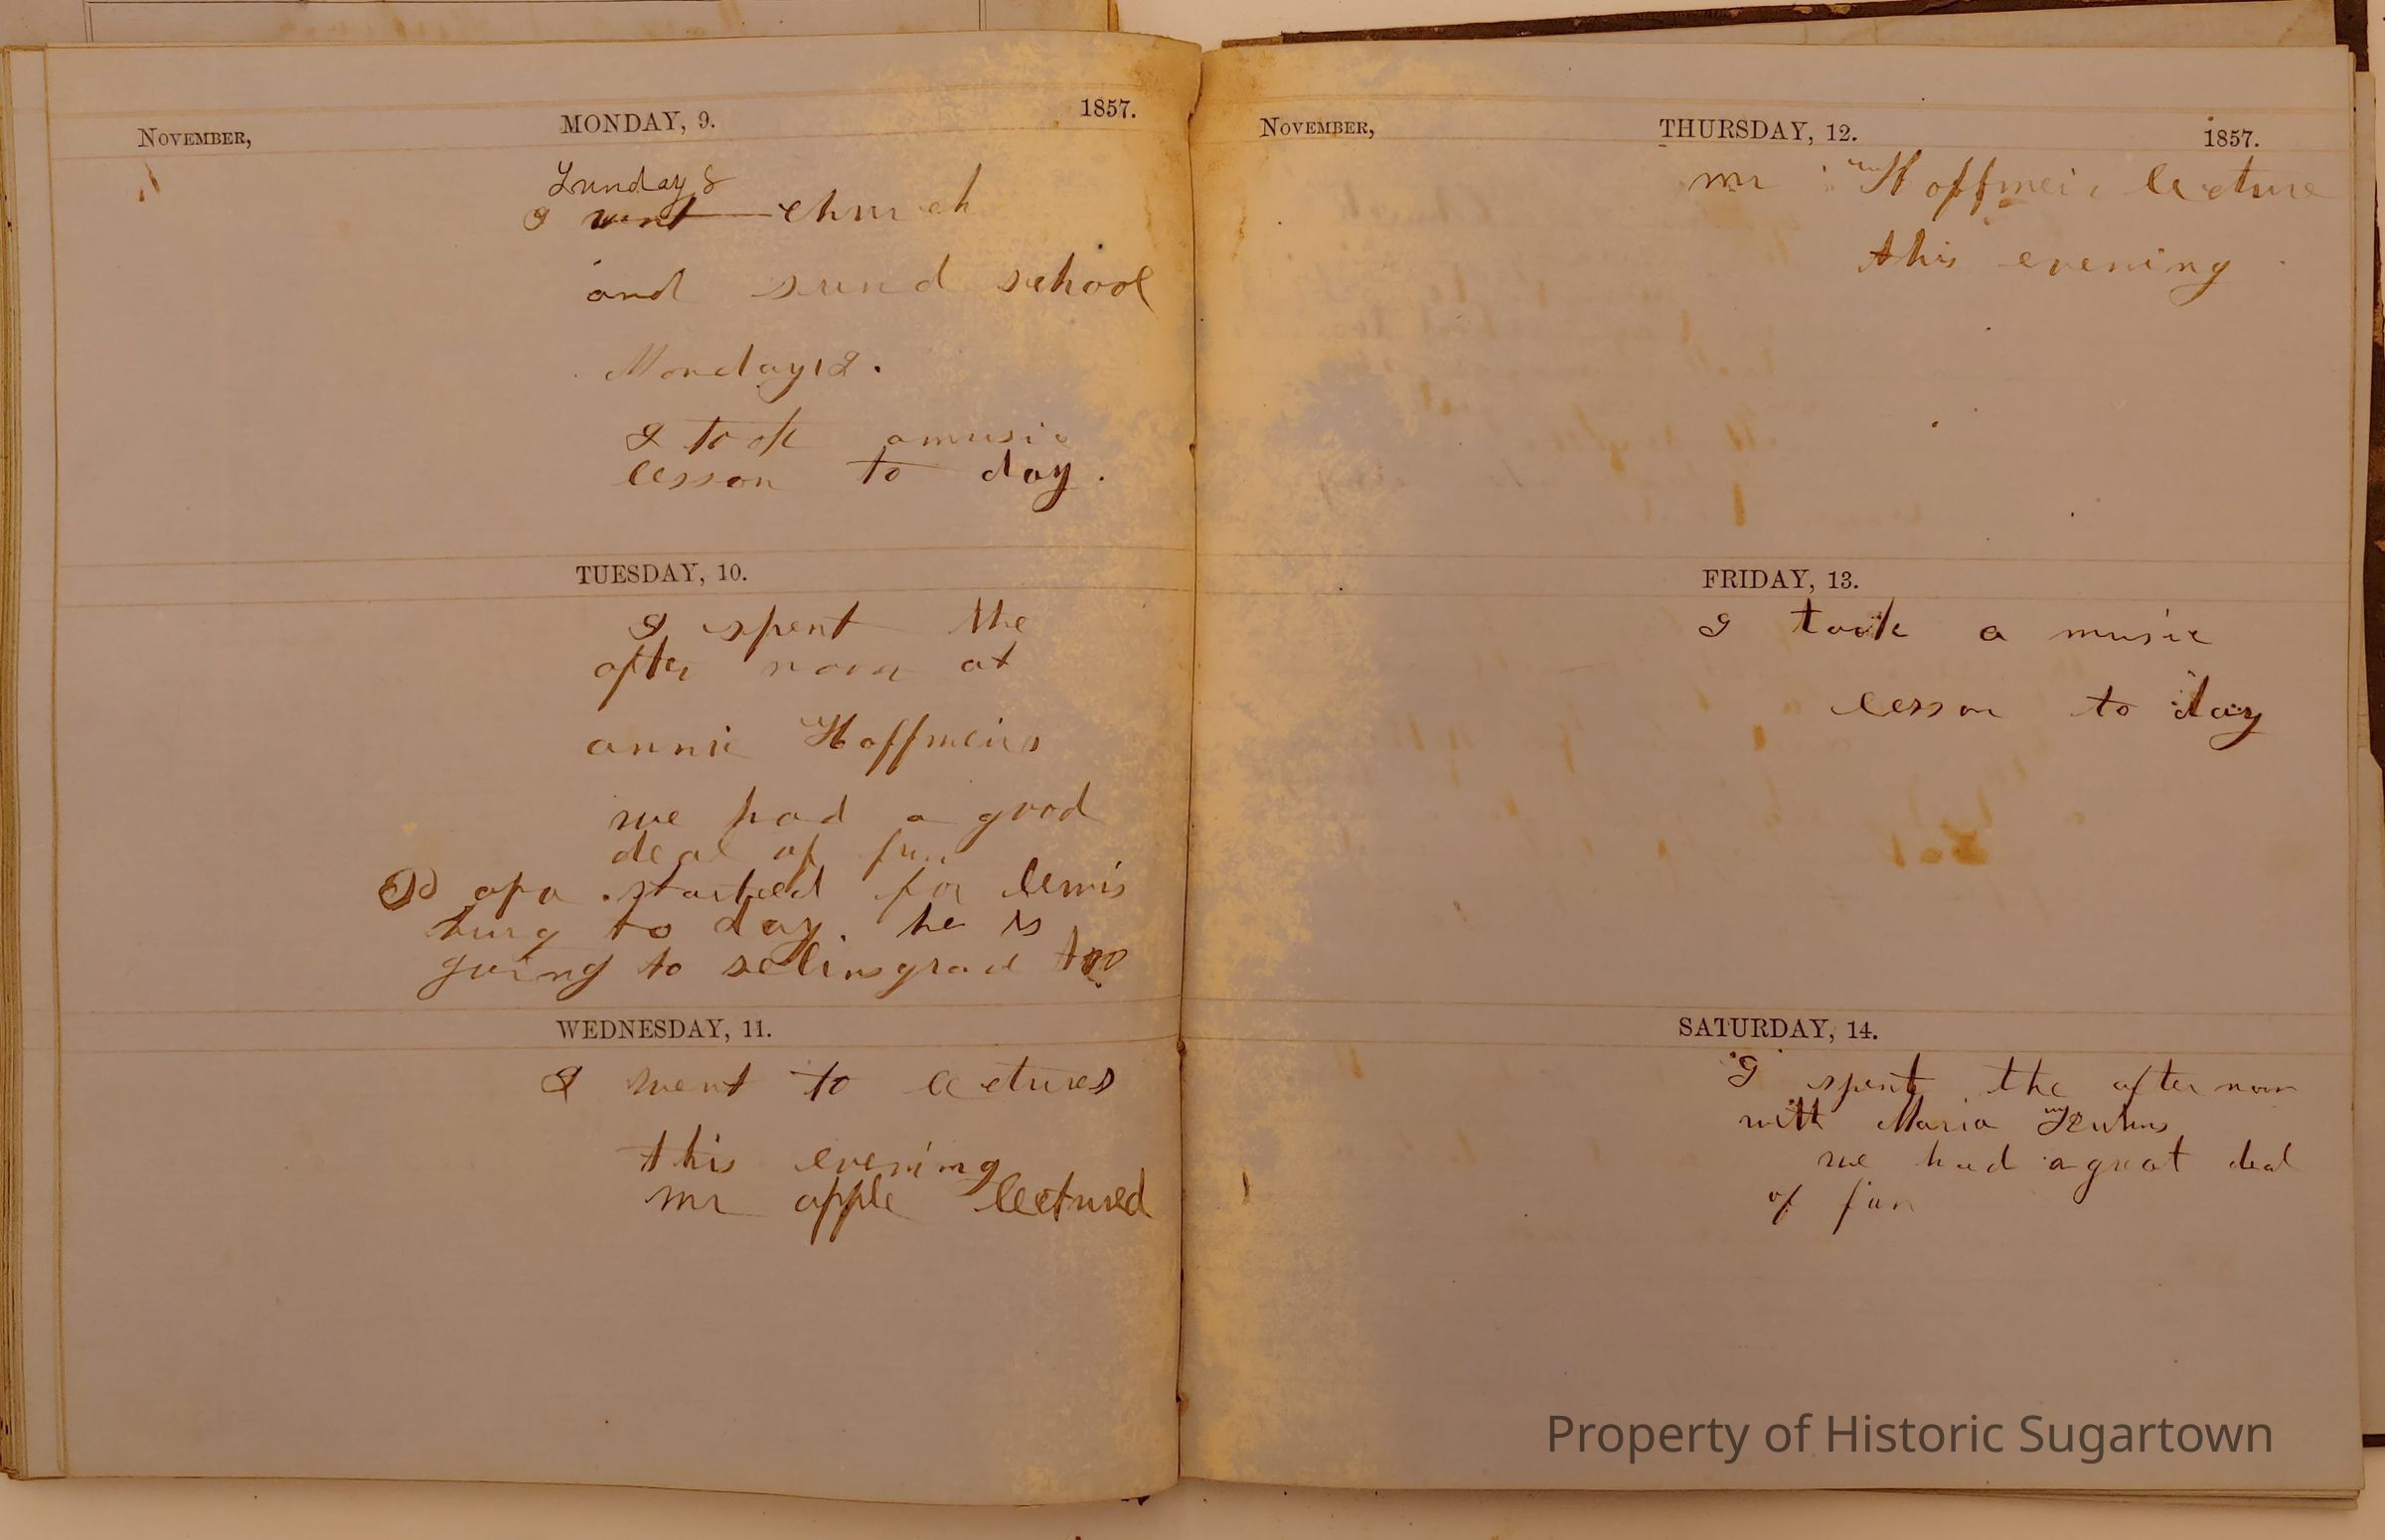 November,
MONDAY, 9.
1857.
Sunday 8
I went church
and sund school
Monday 12.
I took a music
lesson to day.
TUESDAY, 10.
I spent the
after noon at
annie Hoffmeirs
we had a good
deal of fun
Papa started for lewis
burg to day. he is
going to selinsgrove too
WEDNESDAY, 11.
I went to lectures
this evening
mr apple lectured
November,
THURSDAY, 12.
1857.
mr Hoffmeir lecture
this evening
FRIDAY, 13.
I took a music
lesson to day
SATURDAY, 14.
I spent the after noon
with Maria
we had a great deal
of fun
Property of Historic Sugartown